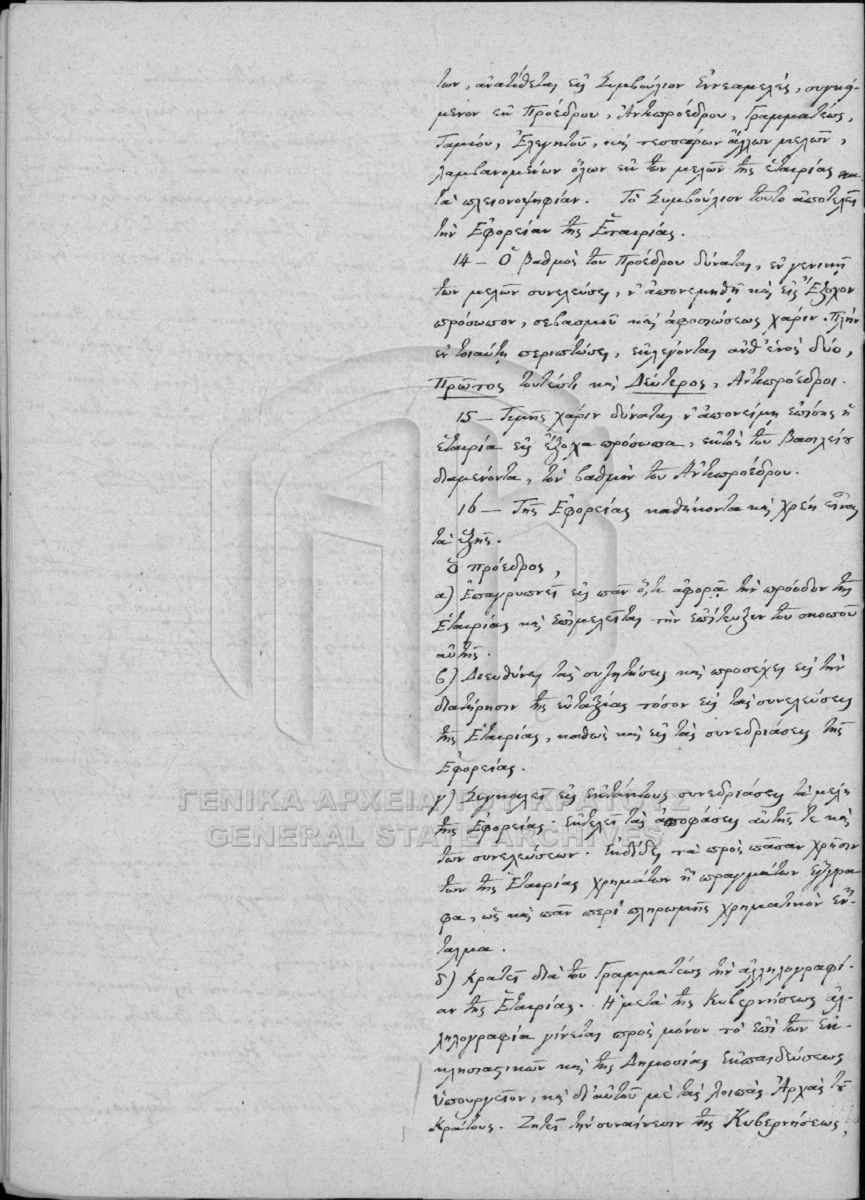 των, ἀνατίθεται εἰς Συμβούλιον Ἐννεαμελὲς, συγκεί-
μενον ἐκ Προέδρου, Ἀντιπροέδρου, Γραμματέως,
Ταμίου, Ἐλεγκτοῦ, καὶ τεσσάρων ἄλλων μελῶν,
λαμβανομένων ὅλων ἐκ τῶν μελῶν τῆς ἑταιρίας κα-
τὰ πλειονοψηφίαν. Τὸ Συμβούλιον τοῦτο ἀποτελεῖ
τὴν Ἐφορείαν τῆς Ἑταιρίας.
14 – Ὁ βαθμὸς τοῦ Προέδρου δύναται, ἐν γενικῇ
τῶν μελῶν συνελεύσει, ν' ἀπονεμηθῇ καὶ εἰς Ἔξοχον
πρόσωπον, σεβασμοῦ καὶ ἀφοσιώσεως χάριν. Πλὴν
ἐν τοιαύτῃ περιπτώσει, ἐκλέγονται ἀνθ' ἑνὸς δύο,
Πρῶτος τουτέστι καὶ Δεύτερος, Ἀντιπρόεδροι.
15 – Τιμῆς χάριν δύναται ν' ἀπονείμῃ ἐπίσης ἡ
ἑταιρία εἰς ἔξοχα πρόσωπα, ἐκτὸς τοῦ Βασιλείου
διαμένοντα, τὸν βαθμὸν τοῦ Ἀντιπροέδρου.
16 – Τῆς Ἐφορείας καθήκοντα καὶ χρέη εἶναι
τὰ ἑξῆς.
Ὁ πρόεδρος,
α) Ἐπαγρυπνεῖ εἰς πᾶν ὅ,τι ἀφορᾷ τὴν πρόοδον τῆς
Ἑταιρίας καὶ ἐπιμελεῖται τὴν ἐπίτευξιν τοῦ σκοποῦ
αὐτῆς.
β) Διευθύνει τὰς συζητήσεις καὶ προσέχει εἰς τὴν
διατήρησιν τῆς εὐταξίας τόσον εἰς τὰς συνελεύσεις
τῆς Ἑταιρίας, καθὼς καὶ εἰς τὰς συνεδριάσεις τῆς
Ἐφορείας.
γ) Συγκαλεῖ εἰς ἐκτάκτους συνεδριάσεις τὰ μέλη
τῆς Ἐφορείας. Ἐκτελεῖ τὰς ἀποφάσεις αὐτῆς τε καὶ
τῶν συνελεύσεων. Ἐκδίδει τὰ πρὸς πᾶσαν χρῆσιν
τῶν τῆς Ἑταιρίας χρημάτων ἢ πραγμάτων ἔγγρα-
φα, ὡς καὶ πᾶν περὶ πληρωμῆς χρηματικὸν ἔν-
ταλμα.
δ) Κρατεῖ διὰ τοῦ Γραμματέως τὴν ἀλληλογραφί-
αν τῆς Ἑταιρίας. Ἡ μετὰ τῆς Κυβερνήσεως ἀλ-
ληλογραφία γίνεται πρὸς μόνον τὸ ἐπὶ τῶν Ἐκ-
κλησιαστικῶν καὶ τῆς Δημοσίας ἐκπαιδεύσεως
Ὑπουργεῖον, καὶ δι' αὐτοῦ μὲ τὰς λοιπὰς Ἀρχὰς τοῦ
Κράτους. Ζητεῖ τὴν συναίνεσιν τῆς Κυβερνήσεως,
ΓΕΝΙΚΑ ΑΡΧΕΙΑ ΤΟΥ ΚΡΑΤΟΥΣ
GENERAL STATE ARCHIVES